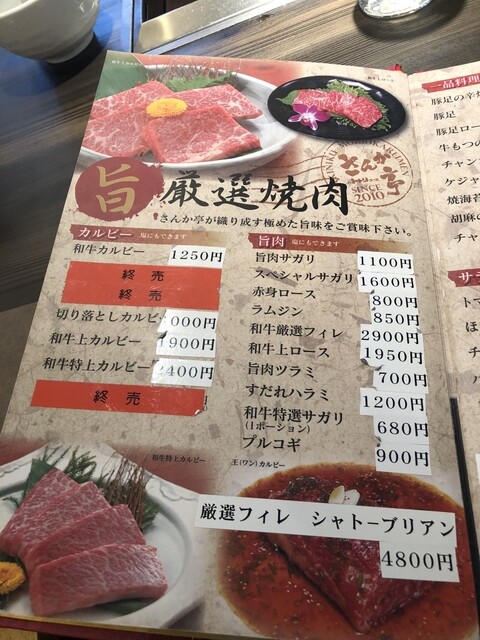 旨
厳選焼肉
さんか亭
SINCE
2010
さんか亭が織り成す極めた旨味をご賞味下さい。
カルビー 塩にもできます
和牛カルビー 1250円
終売
終売
切り落としカルビ 000円
和牛上カルビー 900円
和牛特上カルビー 2400円
終売
旨肉 塩にもできます
旨肉サガリ 1100円
スペシャルサガリ 1600円
赤身ロース 800円
ラムジン 850円
和牛厳選フィレ 2900円
和牛上ロース 1950円
旨肉ツラミ 700円
すだれハラミ 1200円
和牛特選サガリ 680円
(1ポーション)
プルコギ 900円
和牛特上カルビー
王(ワン)カルビー
厳選フィレ シャトーブリアン
4800円
一品料理
豚足の辛
豚足
豚足ロー
牛もつの
チャン
ケジャ
焼海苔
胡麻の
チャ
サラ
トマ
ほ
チ